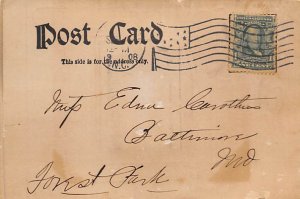 Post Card
This side is for the address only.
08
Miss Edna Carothers
Baltimore
Md
Forest Park